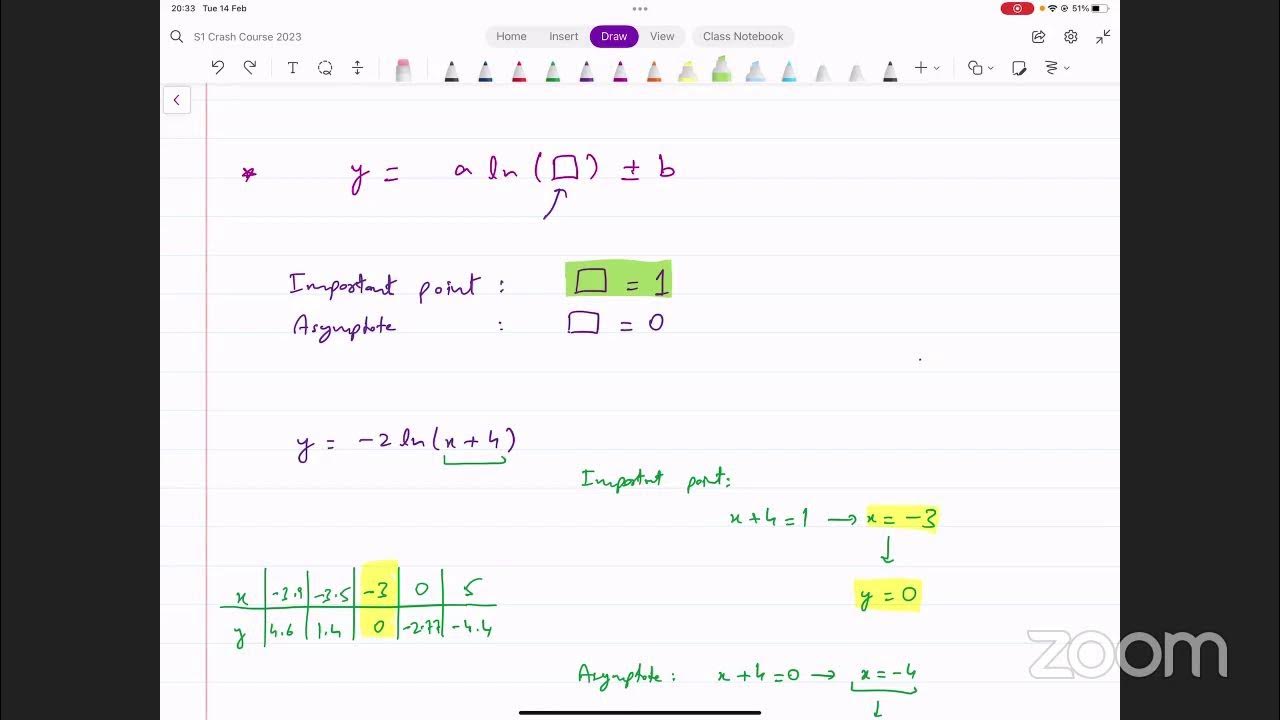 20:33 Tue 14 Feb
51%
S1 Crash Course 2023
Home Insert Draw View Class Notebook
T
* y = a ln (□) ± b
Important point : □ = 1
Asymptote : □ = 0
y = -2 ln (x + 4)
Important point:
x + 4 = 1 → x = -3
↓
y = 0
x | -3.9 | -3.5 | -3 | 0 | 5
y | 4.6 | 1.4 | 0 | -2.77 | -4.4
Asymptote : x + 4 = 0 → x = -4
↓
zoom